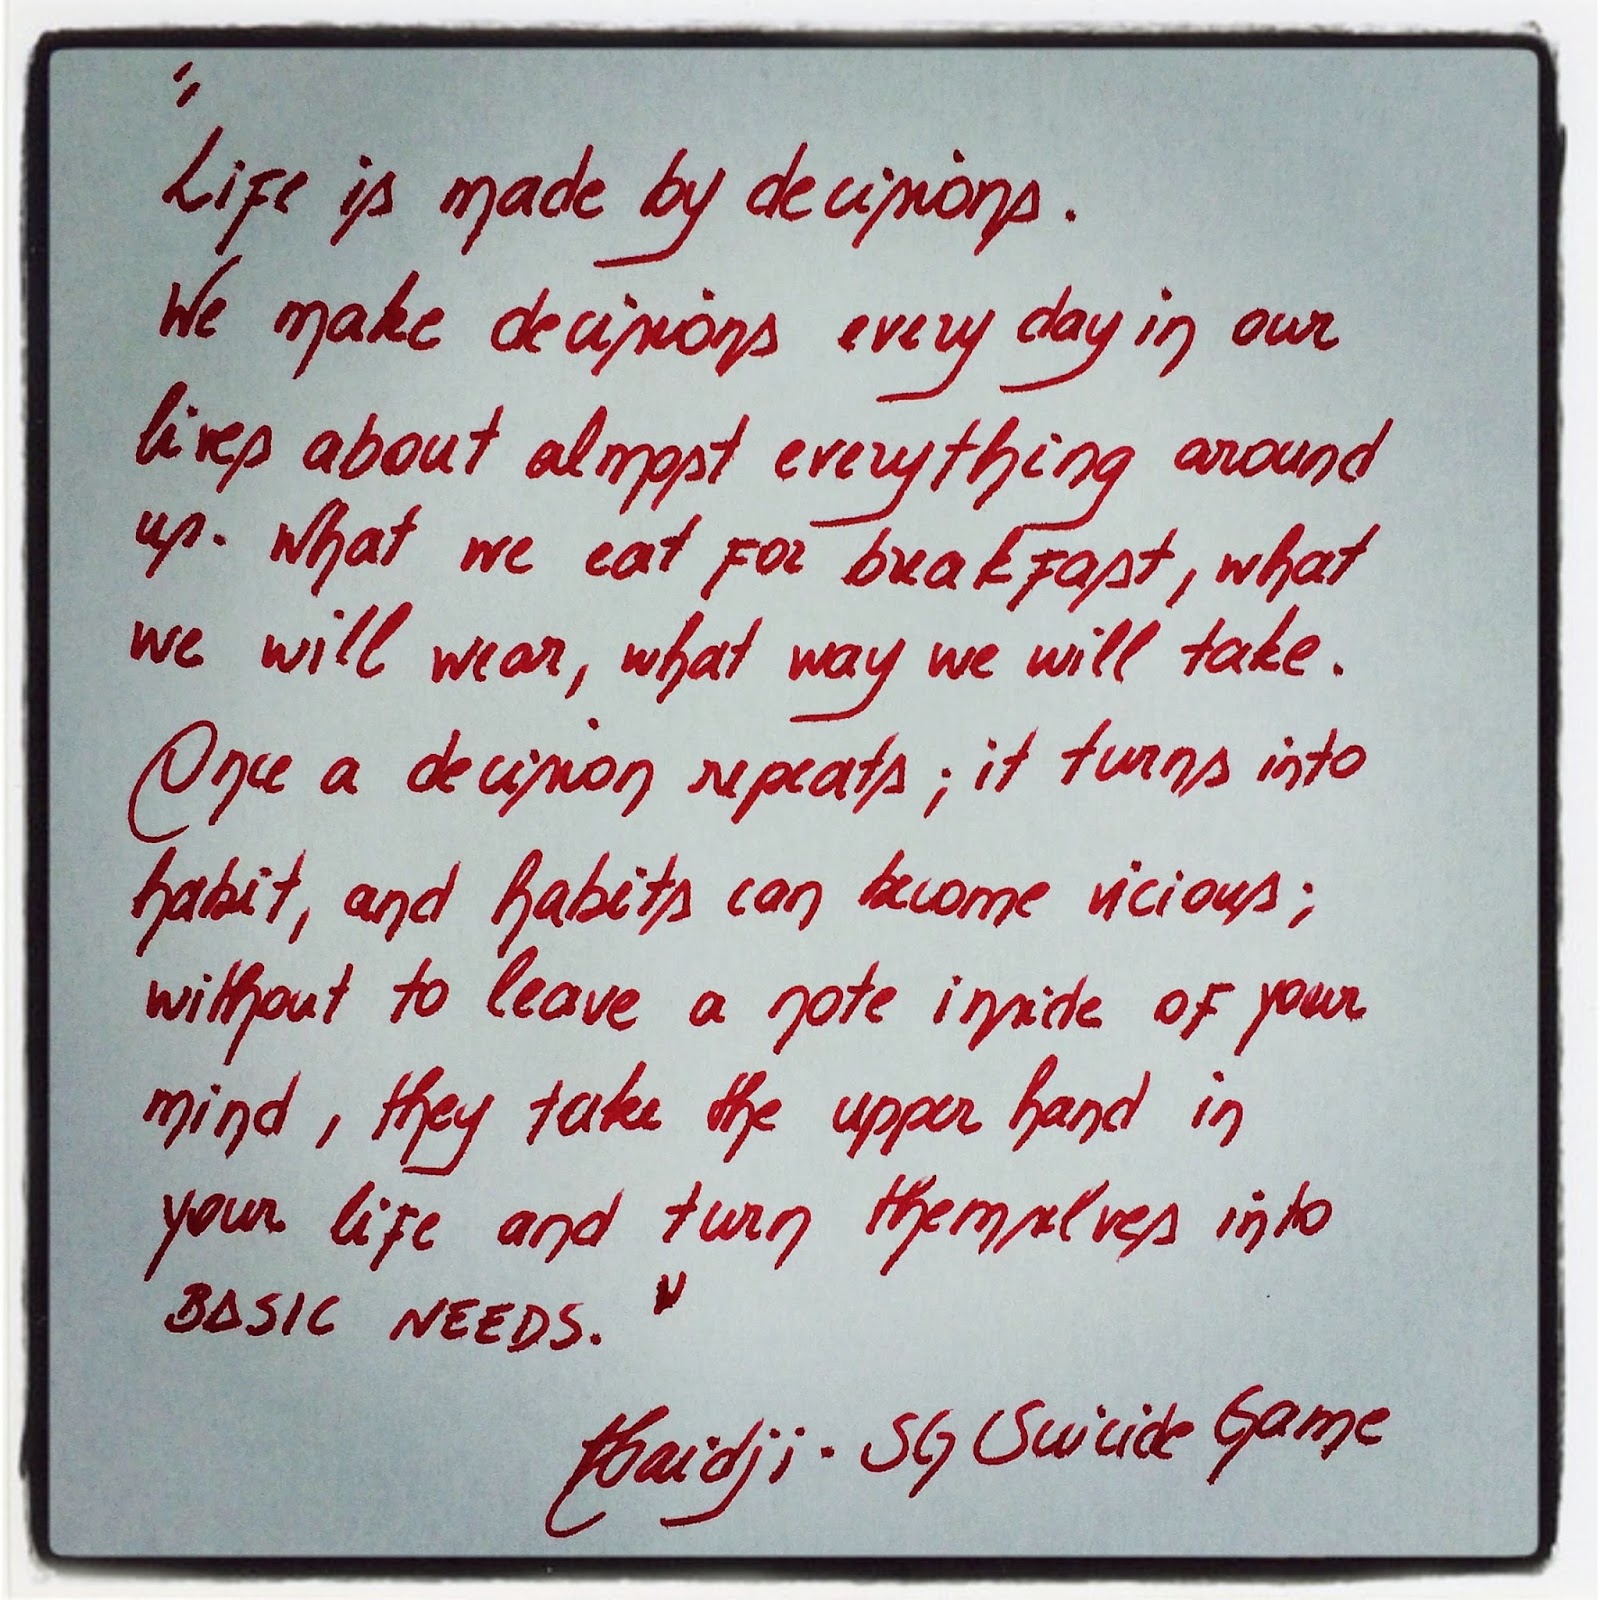 "
Life is made by decisions.
We make decisions every day in our
lives about almost everything around
us. What we eat for breakfast, what
we will wear, what way we will take.
Once a decision repeats; it turns into
habit, and habits can become vicious;
without to leave a note inside of your
mind, they take the upper hand in
your life and turn themselves into
BASIC NEEDS."
Thaidji - SG Suicide Game